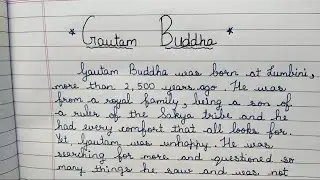 * Gautam Buddha *
Gautam Buddha was born at Lumbini,
more than 2,500 years ago. He was
from a royal family, being a son of
a ruler of the Sakya tribe and he
had every comfort that all looks for.
Yet, Gautam was unhappy. He was
searching for more and questioned so
many things he saw and was not